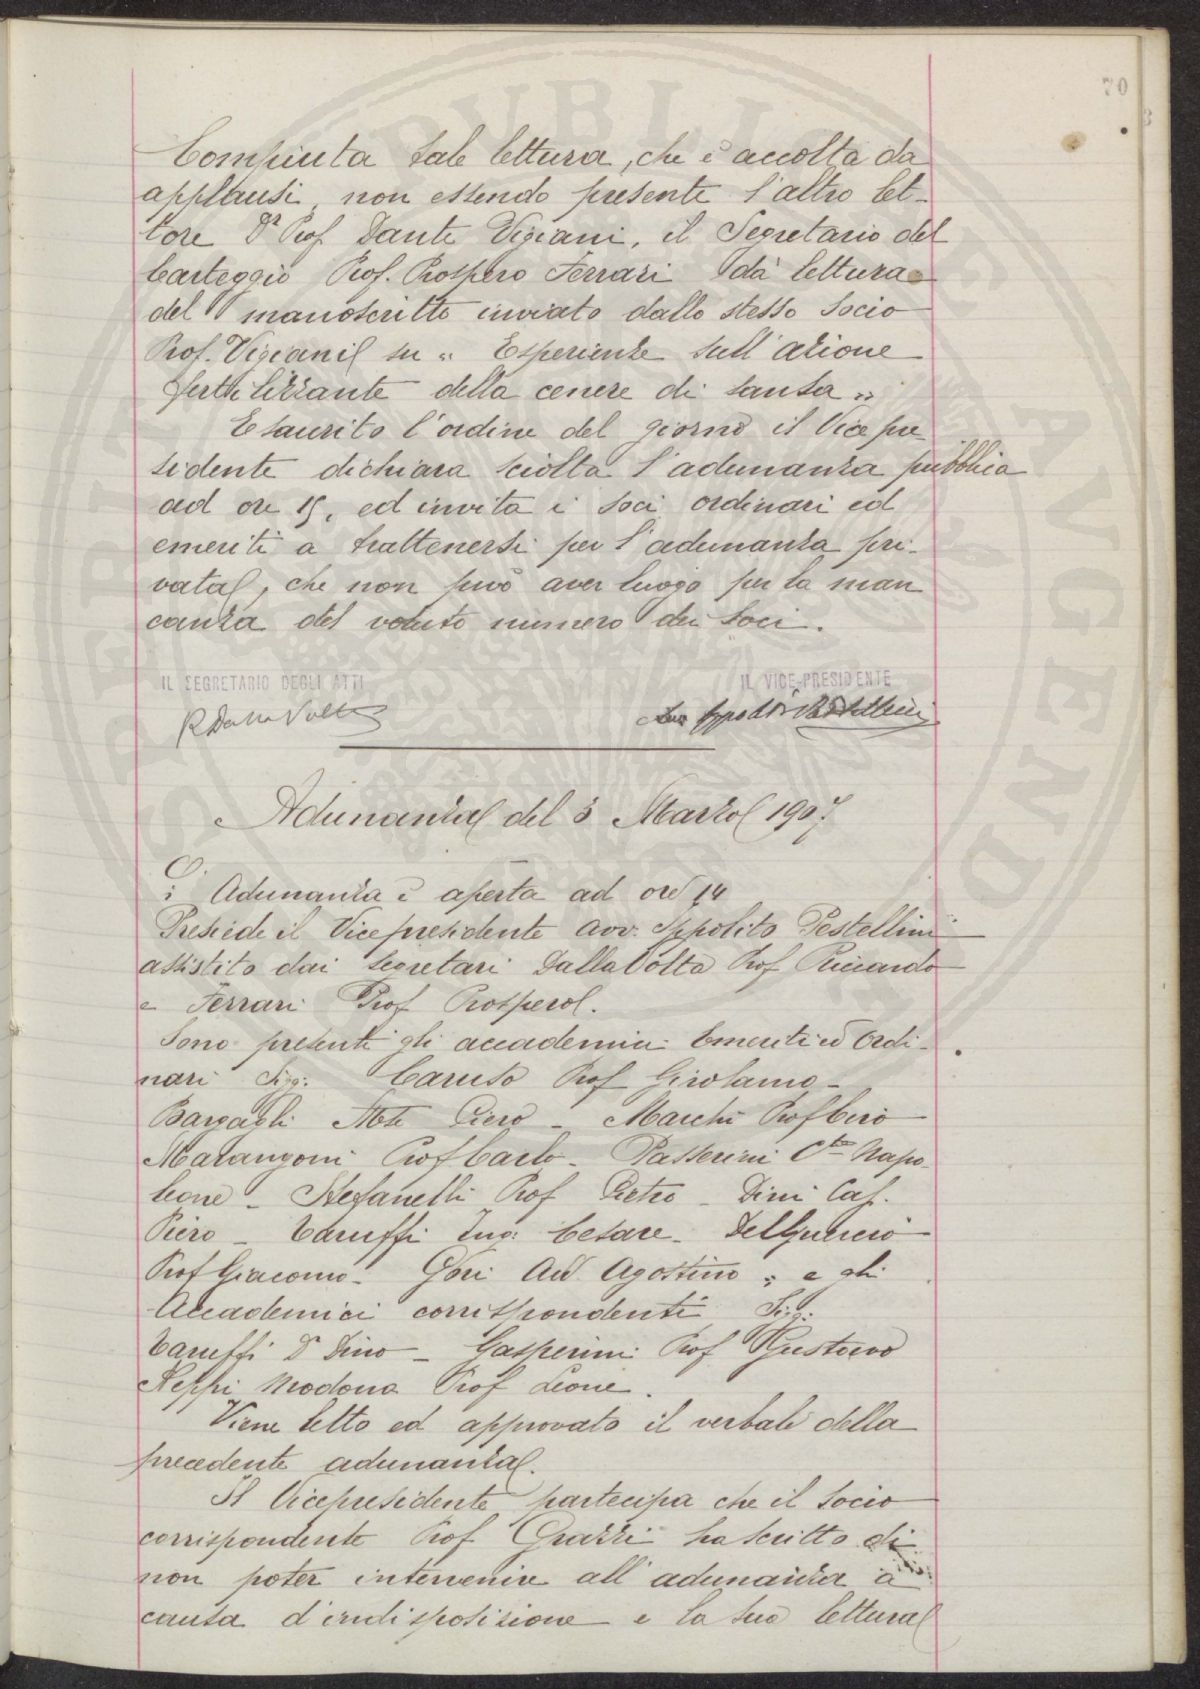 70
Compiuta tale lettura, che è accolta da
applausi, non essendo presente l'altro let-
tore Dr Prof Dante Vigiani, il Segretario del
Carteggio Prof. Prospero Ferrari dà lettura
del manoscritto inviato dallo stesso Socio
Prof. Vigiani su " Esperienze sull'azione
fertilizzante della cenere di sansa "
Esaurito l'ordine del giorno il Vice pre
sidente dichiara sciolta l'adunanza pubblica
ad ore 15, ed invita i soci ordinari ed
emeriti a trattenersi per l'adunanza pri-
vata, che non può aver luogo per la man
canza del voluto numero dei Soci.
IL SEGRETARIO DEGLI ATTI
IL VICE-PRESIDENTE
R Dalla Volta
Ippolito Pestellini
Adunanza del 3 Marzo 1907
L'Adunanza è aperta ad ore 14
Presiede il Vicepresidente avv. Ippolito Pestellini
assistito dai segretari Dalla Volta Prof Riccardo
e Ferrari Prof Prospero.
Sono presenti gli accademici Emeriti ed Ordi-
nari Sigg: Caruso Prof Girolamo -
Bargagli Piero - Marchi Prof Ciro
Marangoni Prof Carlo - Passerini Cte Napo-
leone - Stefanelli Prof Pietro - Dini Cap.
Piero - Taruffi Ing: Cesare - Del Guercio
Prof Giacomo - Gori Avv. Agostino " e gli
Accademici corrispondenti Sigg:
Taruffi Dr Dino - Gasperini Prof Gustavo
Neppi Modona Prof Leone.
Viene letto ed approvato il verbale della
precedente adunanza.
Il Vicepresidente partecipa che il socio
corrispondente Prof Grazzi ha scritto di
non poter intervenire all'adunanza a
causa d'indisposizione e la sua lettura